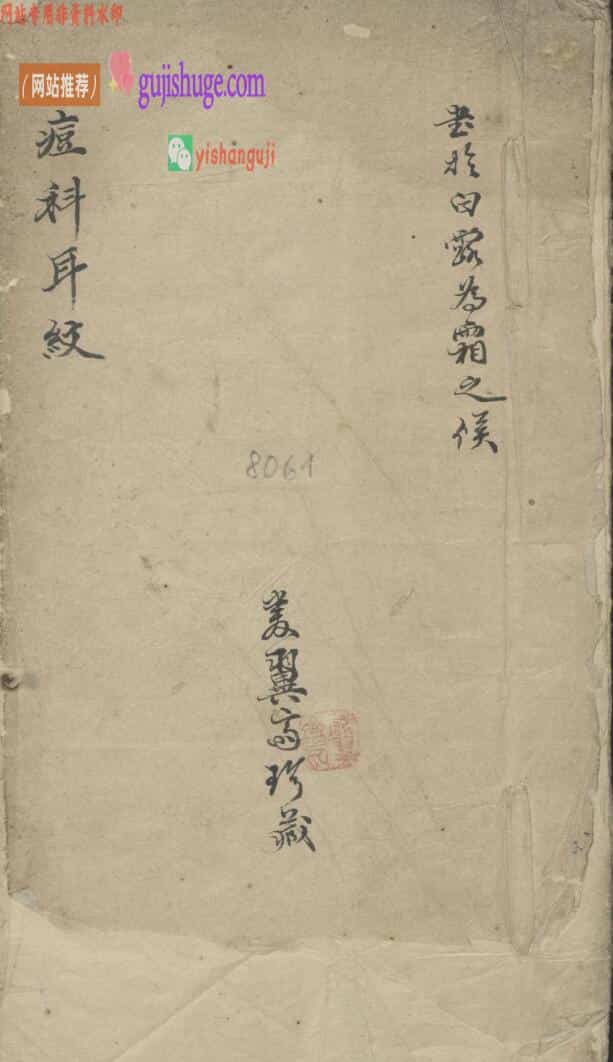 网站专用非资料水印
(网站推荐)
gujishuge.com
yishanguji
书於白露為霜之候
8061
翼斋珍藏
痘科耳紋